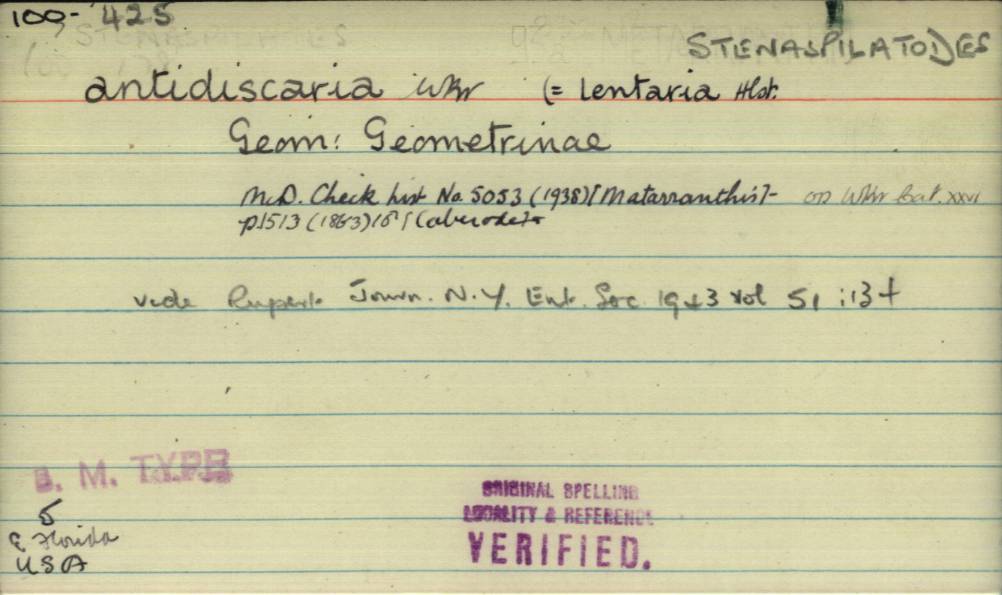 100- 425
STENASPILATODES
antidiscaria Wkr (= lentaria Hlst.
Geom: Geometrinae
McD. Check List No. 5053 (1938) [Matarranthis] - op Wkr Cat. xxvi
p1513 (1863)
vide Rupert. Journ. N.Y. Ent. Soc. 1943 vol 51 : 134
B. M. TYPE
E Florida
USA
ORIGINAL SPELLING
LOCALITY & REFERENCE
VERIFIED.